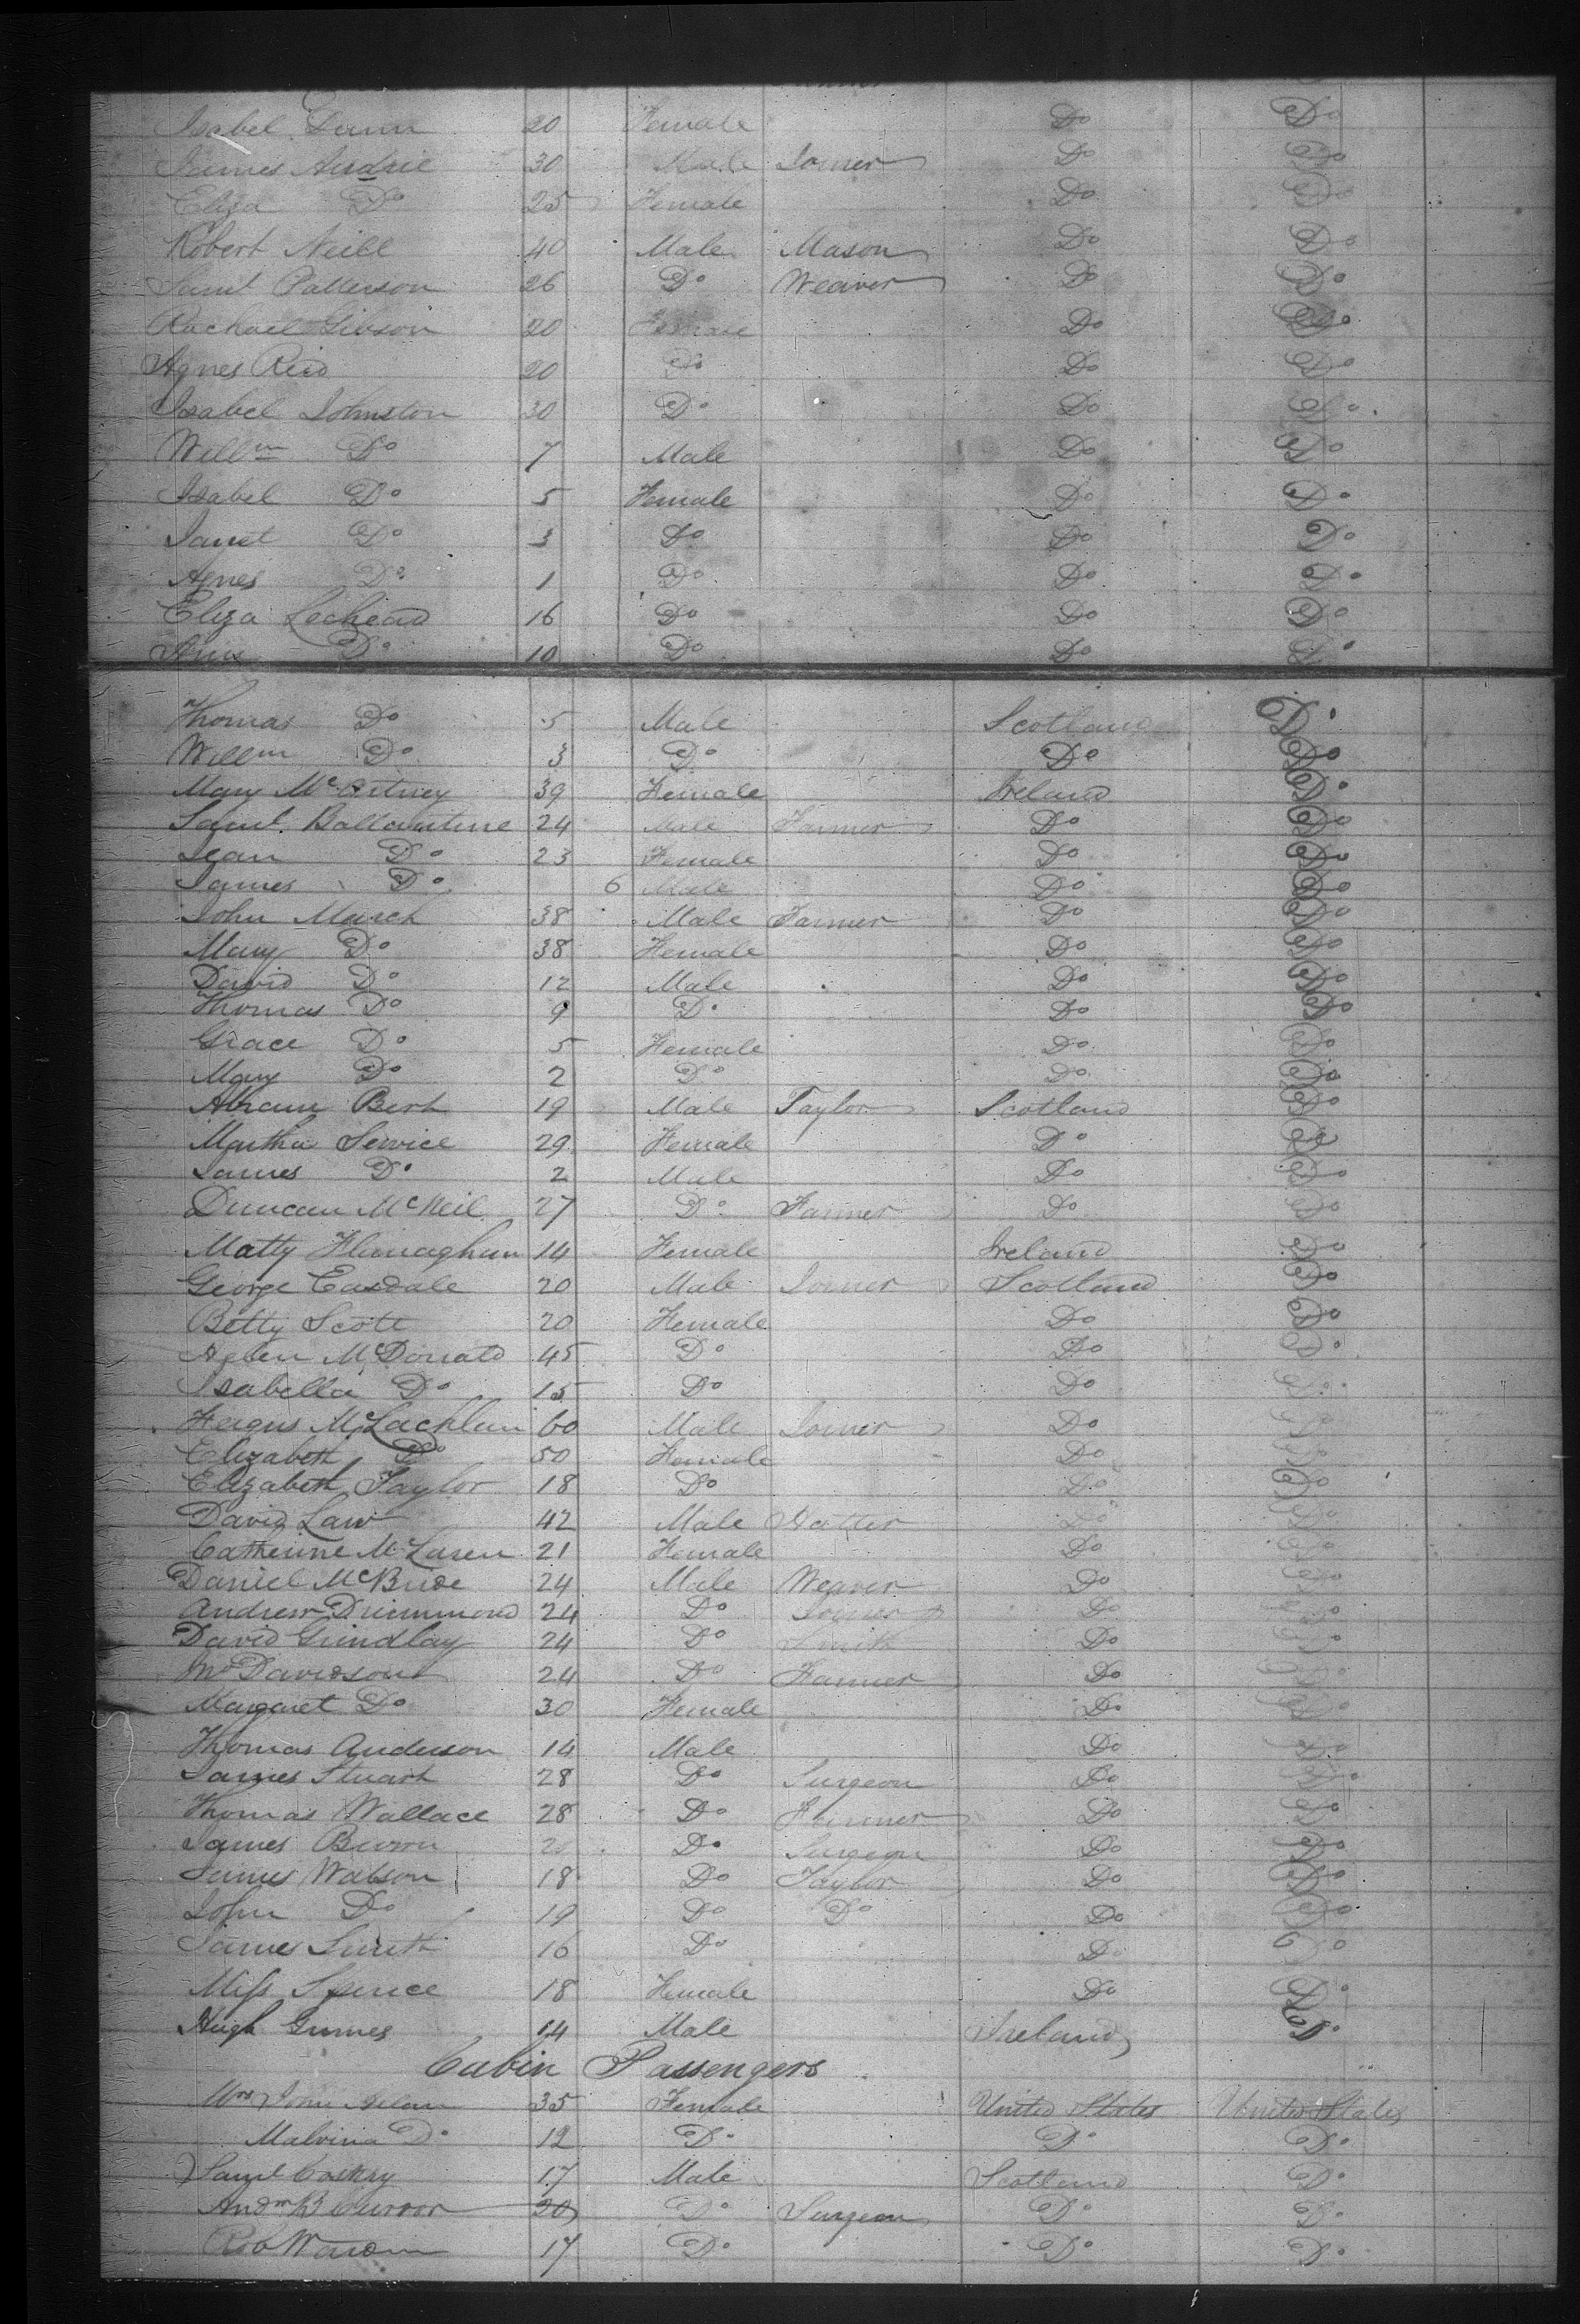 Isabel Dunn 20 Female Do Do
James Airdrie 30 Male Joiner Do Do
Eliza Do 25 Female Do Do
Robert Neill 40 Male Mason Do Do
Saml Patterson 26 Do Weaver Do Do
Rachael Gibson 20 Female Do Do
Agnes Reid 20 Do Do Do
Isabel Johnston 30 Do Do Do
Willm Do 7 Male Do Do
Isabel Do 5 Female Do Do
Janet Do 3 Do Do Do
Agnes Do 1 Do Do Do
Eliza Lochead 16 Do Do Do
Do 10 Do Do Do
Thomas Do 5 Male Scotland Do
Willm Do 3 Do Do Do
Mary McCartney 39 Female Ireland Do
Saml. Ballantine 24 Male Farmer Do Do
Jean Do 23 Female Do Do
James Do 6 Male Do Do
John March 38 Male Farmer Do Do
Mary Do 38 Female Do Do
David Do 12 Male Do Do
Thomas Do 9 Do Do Do
Grace Do 5 Female Do Do
Mary Do 2 Do Do Do
Abram Bert 19 Male Taylor Scotland Do
Martha Service 29 Female Do Do
James Do 2 Male Do Do
Duncan McNeil 27 Do Farmer Do Do
Matty Flanaghan 14 Female Ireland Do
George Easdale 20 Male Joiner Scotland Do
Betty Scott 20 Female Do Do
McDonald 45 Do Do Do
Isabella Do 15 Do Do Do
Fergus McLachlan 60 Male Joiner Do Do
Elizabeth Do 50 Female Do Do
Elizabeth Taylor 18 Do Do Do
David Law 42 Male Hatter Do Do
Catherine McLaren 21 Female Do Do
Daniel McBride 24 Male Weaver Do Do
Andrew Drummond 24 Do Joiner Do Do
David Grindlay 24 Do Smith Do Do
Davidson 24 Do Farmer Do Do
Margaret Do 30 Female Do Do
Thomas Anderson 14 Male Do Do
James Stuart 28 Do Surgeon Do Do
Thomas Wallace 28 Do Farmer Do Do
James Do Surgeon Do Do
James Watson 18 Do Taylor Do Do
John Do 19 Do Do Do Do
James Smith 16 Do Do Do
Miss Spence 18 Female Do Do
Hugh Grimes 14 Male Ireland Do
Cabin Passengers
Mrs 35 Female United States United States
Malvina Do 12 Do Do Do
Saml Coskry 17 Male Scotland Do
Andw B Curror 20 Do Surgeon Do Do
Rob 17 Do Do Do